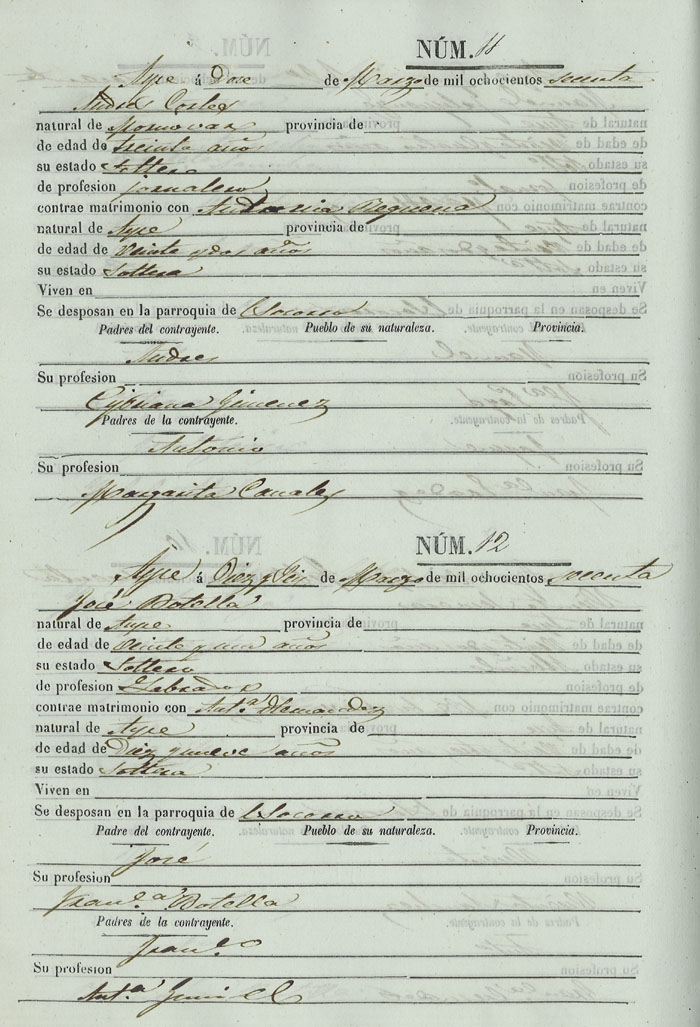 NÚM. 11
Aspe á Dose de Marzo de mil ochocientos secenta
Andres Cortes
natural de Monovar provincia de
de edad de treinta años
su estado Soltero
de profesion Jornalero
contrae matrimonio con Requena
natural de Aspe provincia de
de edad de veinte y dos años
su estado Soltera
Viven en
Se desposan en la parroquia de Socorro
Padres del contrayente. Pueblo de su naturaleza. Provincia.
Andres
Su profesion
Cipriana Gimenez
Padres de la contrayente.
Antonio
Su profesion
Margarita Canales
NÚM. 12
Aspe á Diez y Seis de Marzo de mil ochocientos secenta
José Botella
natural de Aspe provincia de
de edad de veinte y un años
su estado Soltero
de profesion Labrador
contrae matrimonio con Ant.ª Hernandez
natural de Aspe provincia de
de edad de Diez y nueve años
su estado Soltera
Viven en
Se desposan en la parroquia de Socorro
Padre del contrayente. Pueblo de su naturaleza. Provincia.
José
Su profesion
Fran.ca Botella
Padres de la contrayente.
Fran.co
Su profesion
Ant.ª